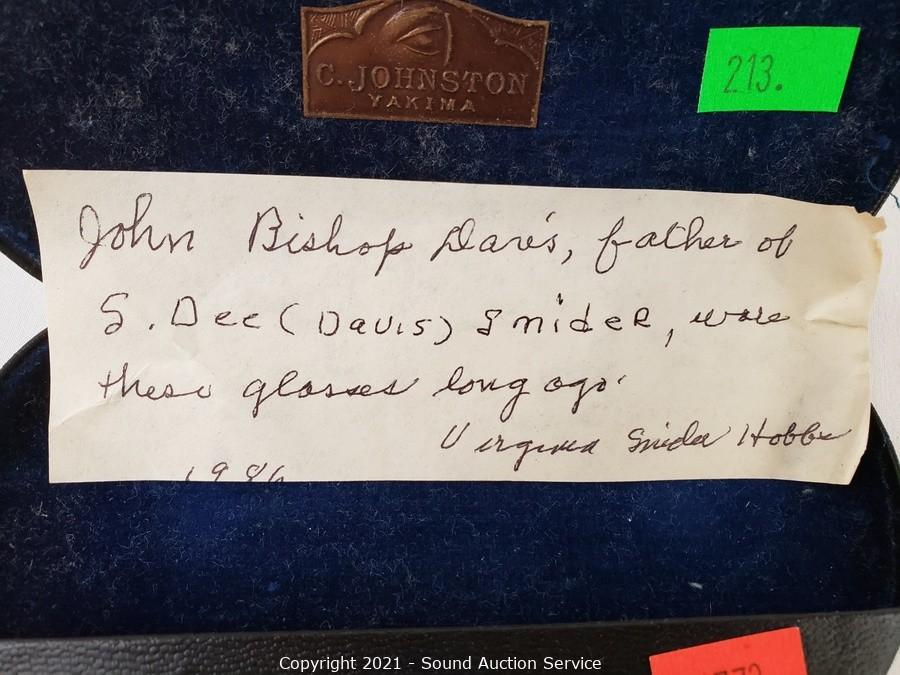 C. JOHNSTON
YAKIMA
213.
John Bishop Davis, father of
S. Dee (Davis) Snider, wore
these glasses long ago.
Virginia Snider Hobbs
1986
Copyright 2021 - Sound Auction Service